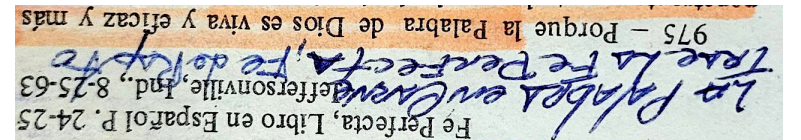 Fe Perfecta, Libro en Español P. 24-25
Jeffersonville, Ind., 8-25-63
La Palabra en Carne
Trae La Fe Perfecta, Fe de Rapto
975 – Porque la Palabra de Dios es viva y eficaz y más